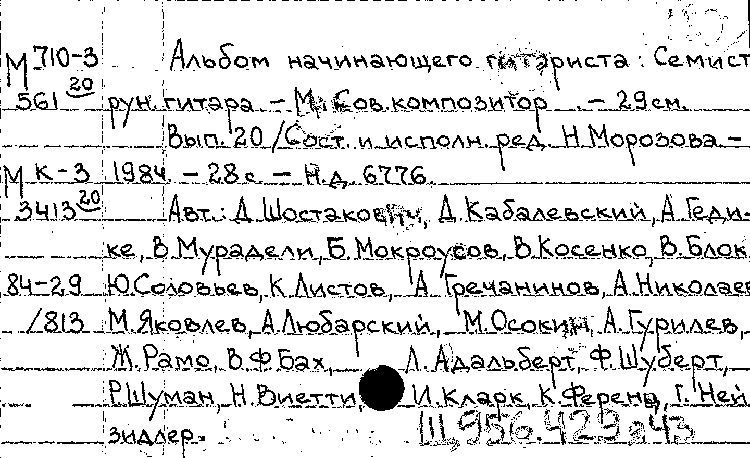 М 710-3 Альбом начинающего гитариста: Семист
561 20 рун. гитара. – М.: Сов. композитор. – 29 см.
Вып. 20 / Сост. и исполн. ред. Н. Морозова –
М К-3 1984. – 28 с. – Н.д. 6776.
3413 20 Авт.: Д. Шостакович, Д. Кабалевский, А. Геди-
ке, В. Мурадели, Б. Мокроусов, В. Косенко, В. Блок,
84-29 Ю. Соловьев, К. Листов, А. Гречанинов, А. Николаев
/813 М. Яковлев, А. Любарский, М. Осокин, А. Гурилев,
Ж. Рамо, В.Ф. Бах, Л. Адальберт, Ф. Шуберт,
Р. Шуман, Н. Виетти, И. Кларк, К. Ференц, Г. Ней
зидлер.
Щ956.429я43